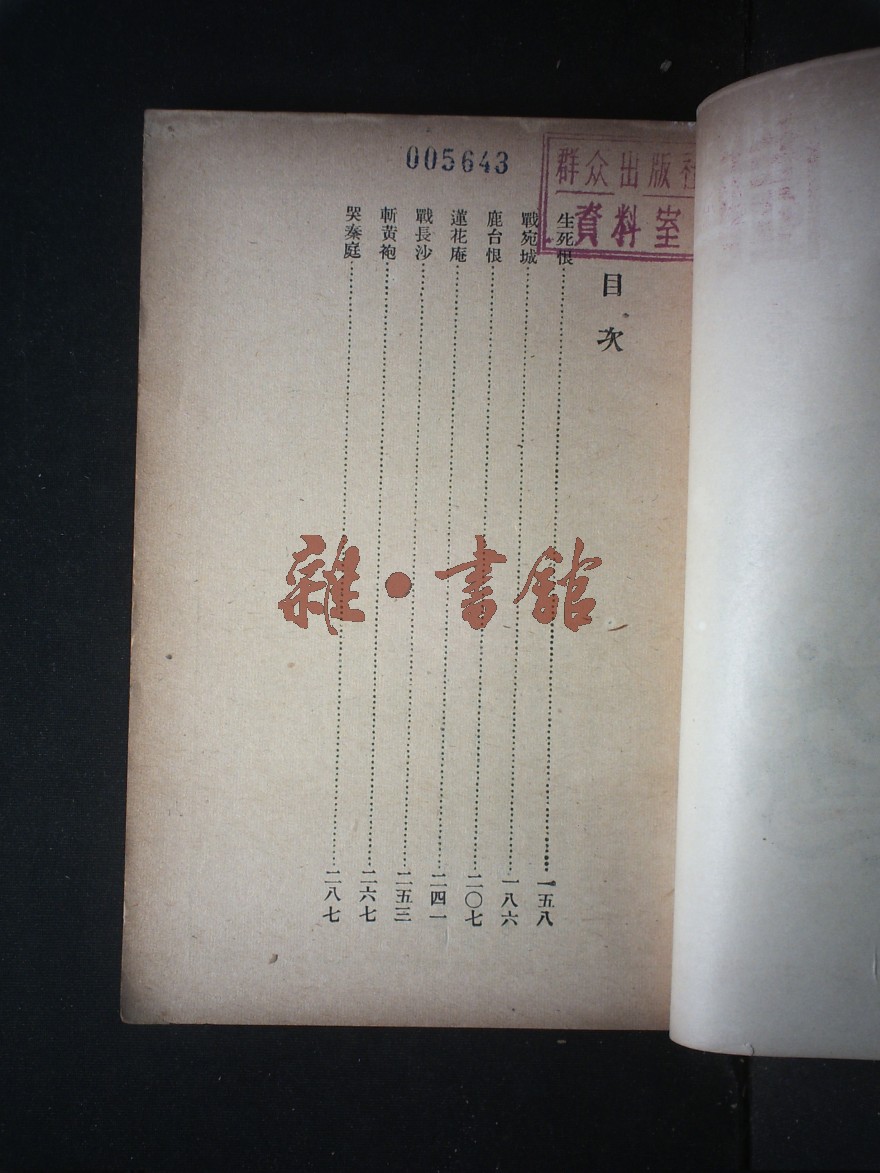 005643
群众出版社
資料室
目次
生死恨 一五八
戰宛城 一八六
鹿台恨 二〇七
蓮花庵 二四一
戰長沙 二五三
斬黃袍 二六七
哭秦庭 二八七
雜·書館